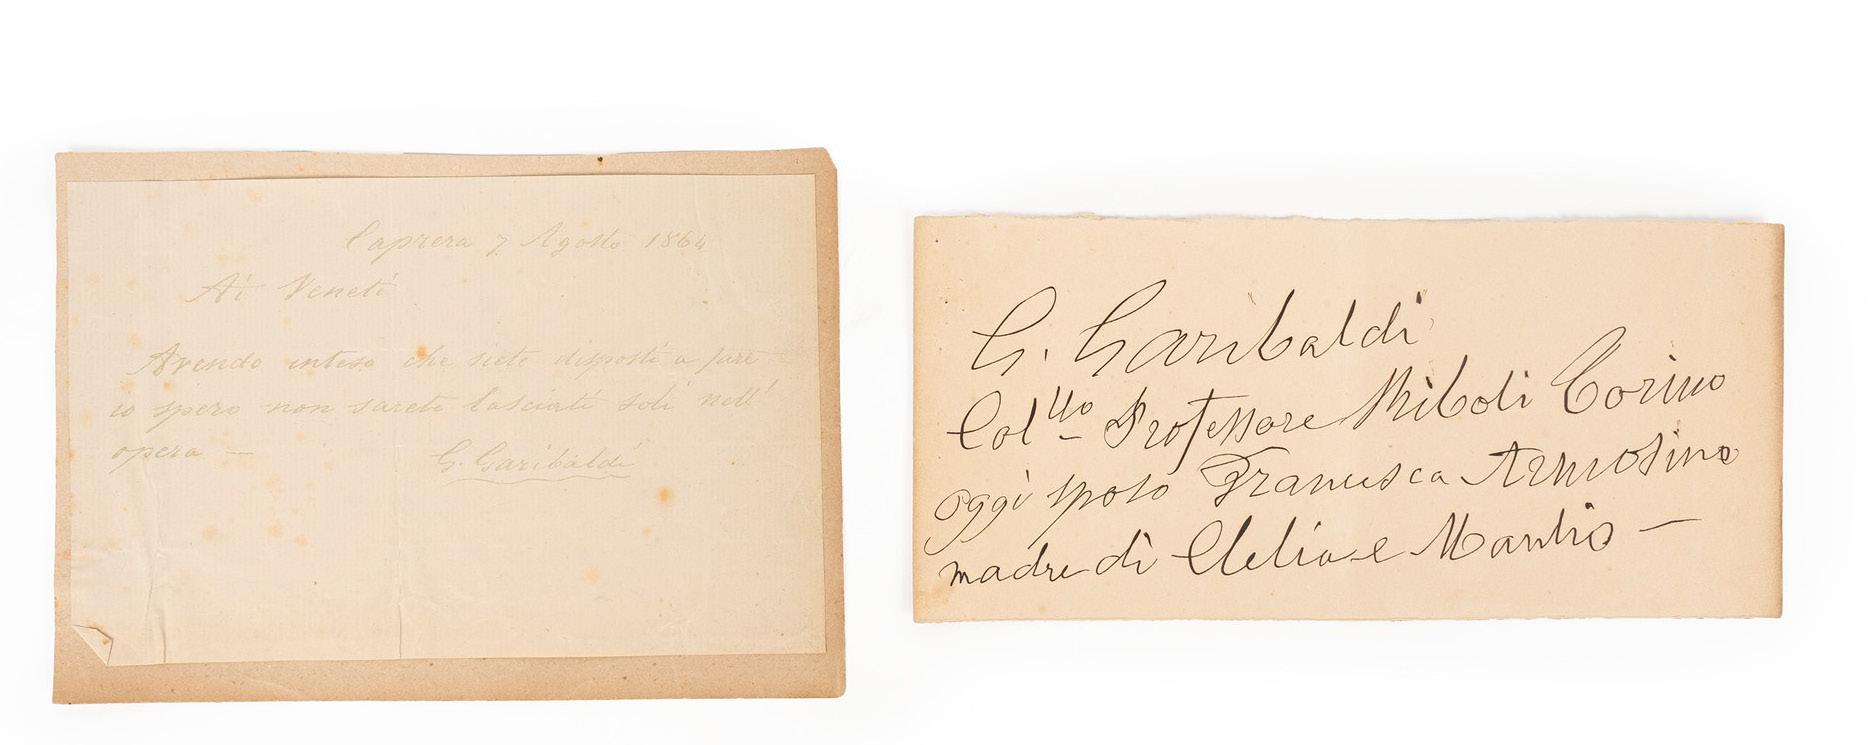 Caprera 7 Agosto 1864
Ai Veneti
Avendo inteso che siete disposti a fare
io spero non sarete lasciati soli nell'
opera —
G. Garibaldi
G. Garibaldi
Col llo Professore Riboli Torino
oggi sposo Francesca Armosino
madre di Clelia e Manlio —